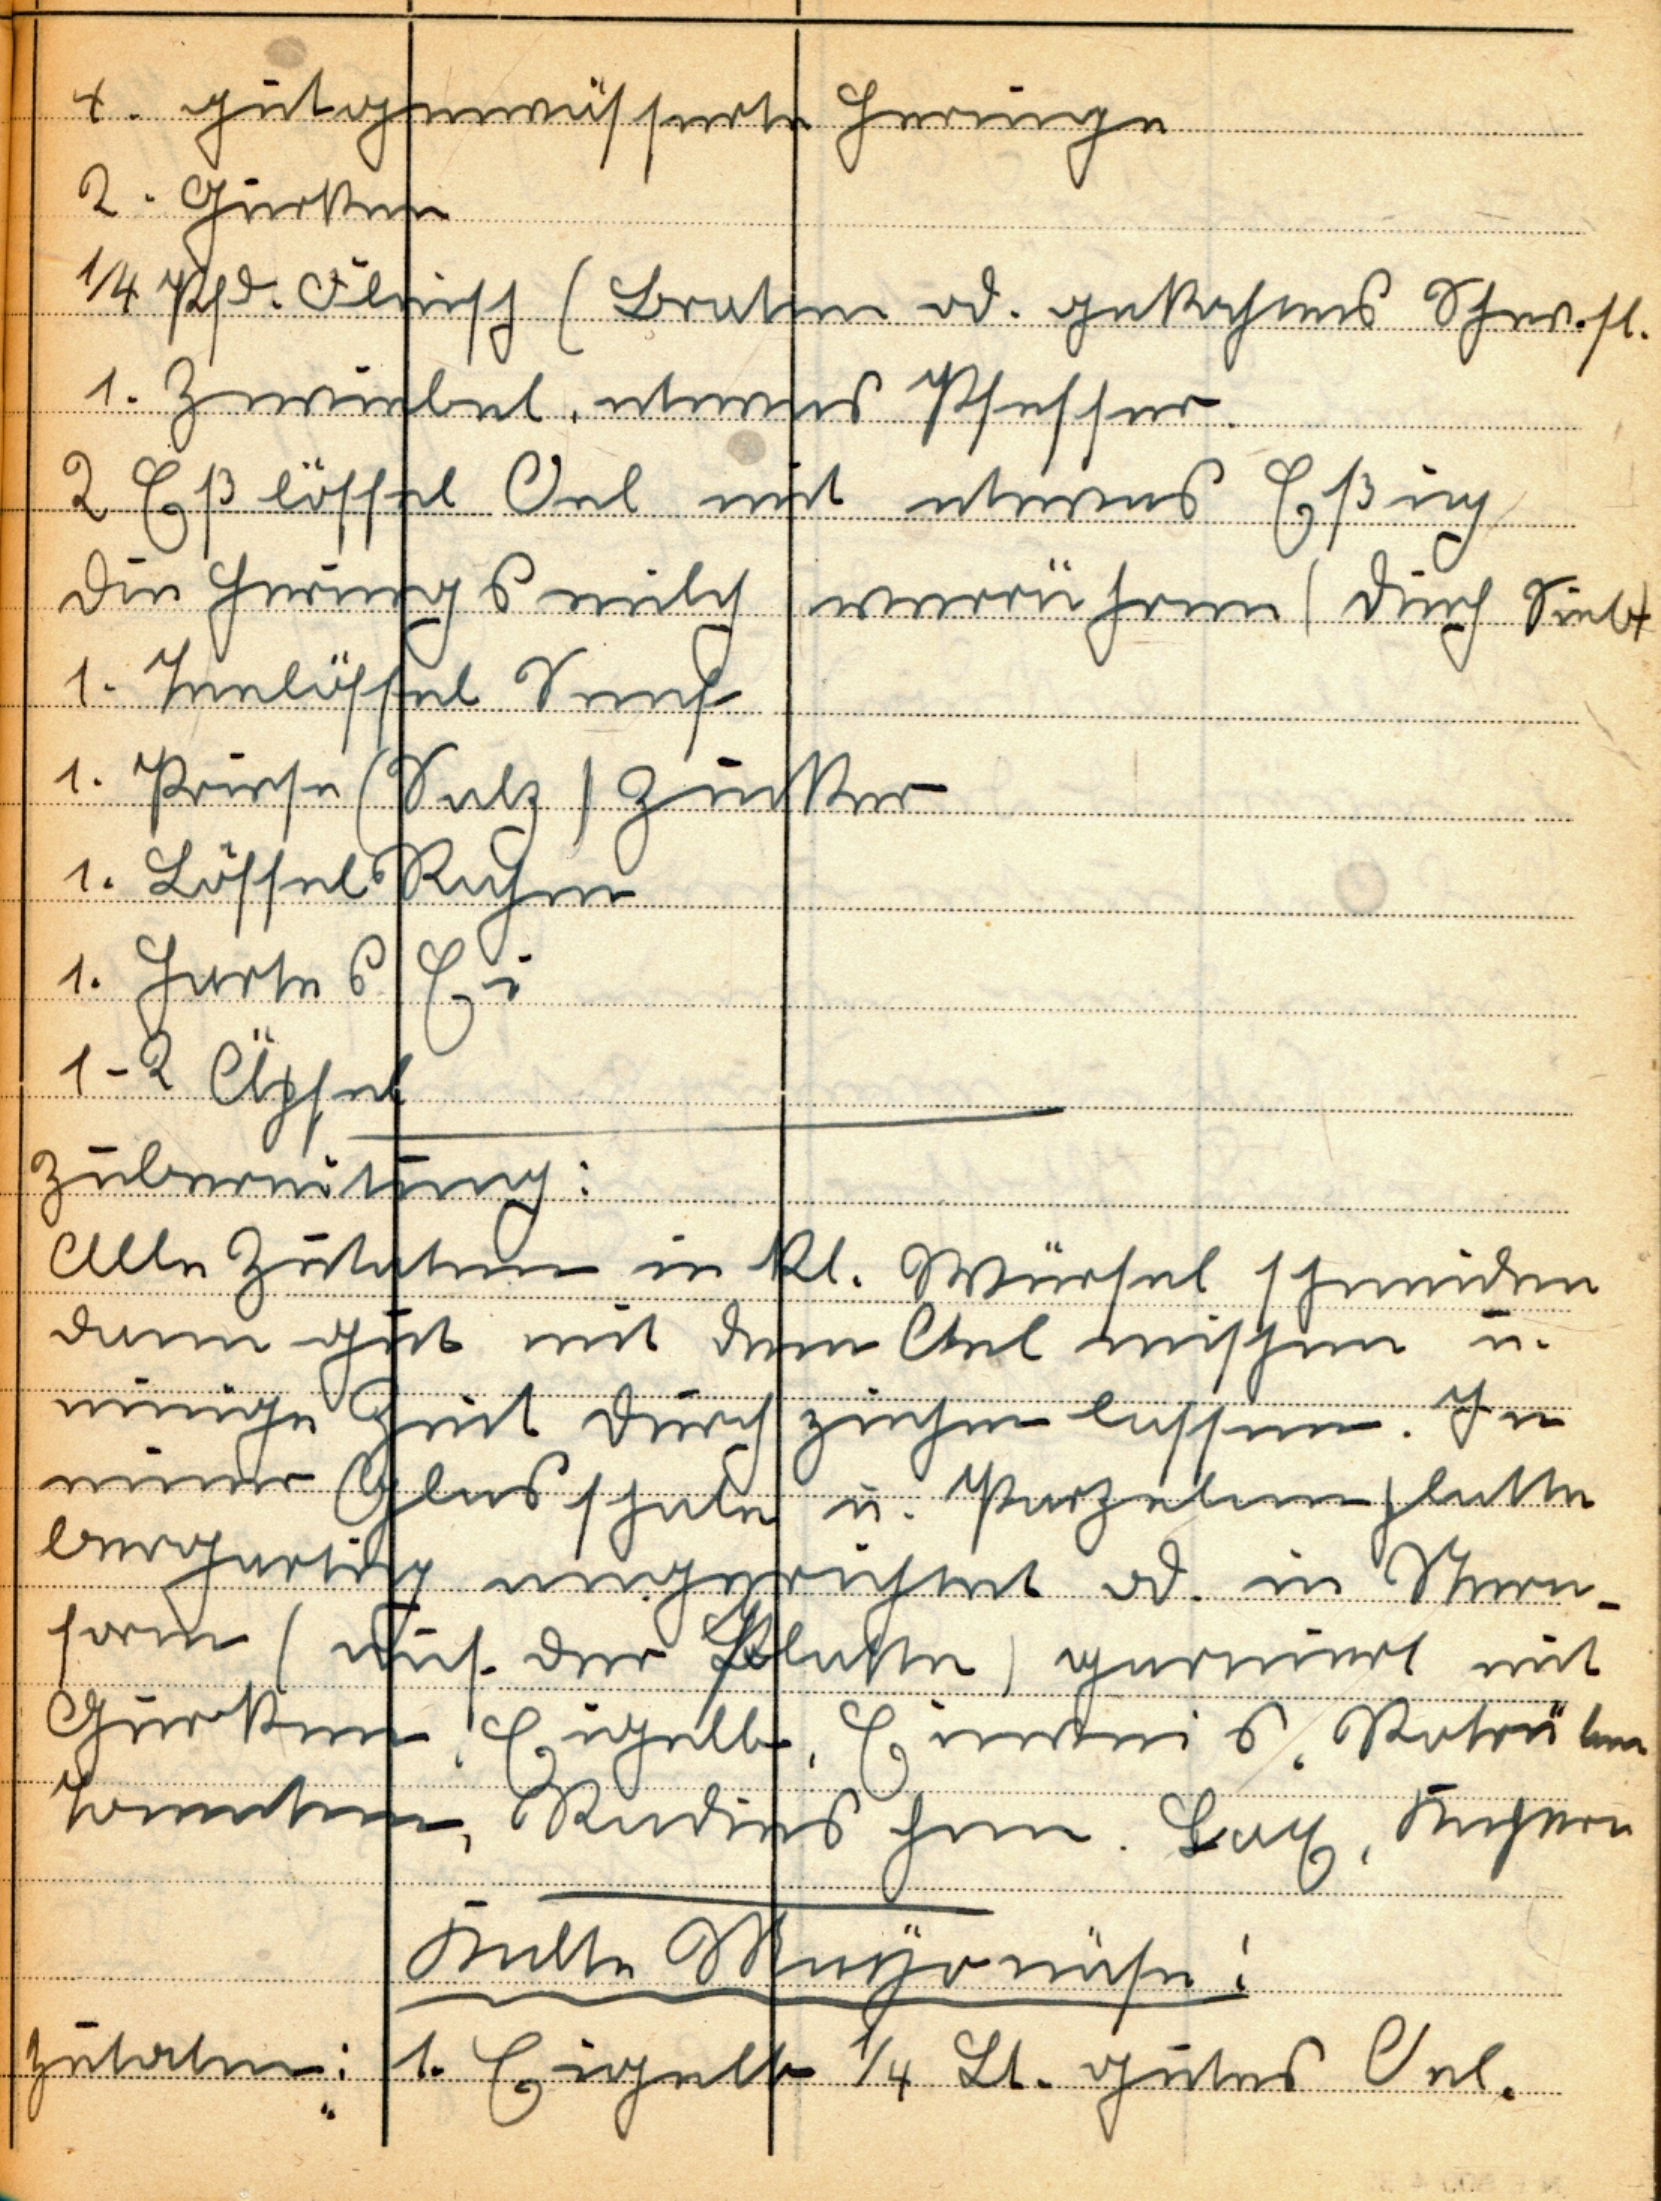 4. gutgewässerte Heringe
2. Gurken
1/4 Pfd. Fleisch (Braten od. gekochtes Schw.fl.
1. Zwiebel, etwas Pfeffer.
2 Eßlöffel Oel mit etwas Eßig
die Heringsmilch verrühren (durch Sieb)
1. Teelöffel Senf
1. Prise (Salz) Zucker
1. Löffel Kapern
1. Hartes Ei
1-2 Äpfel
Zubereitung:
Alle Zutaten in kl. Würfel schneiden
dann gut mit dem Oel mischen u.
einige Zeit durch ziehen lassen. In
einer Glasschale u. Porzelanplatte
bergartig angerichtet od. in Stern-
form (auf der Platte) garniert mit
Gurken, Eigelb, Eiweis, Rotrüben
Tomaten, Radieschen. Lax, Kapern
Kalte Mayonäse:
Zutaten: 1. Eigelb 1/4 Lt. gutes Oel.